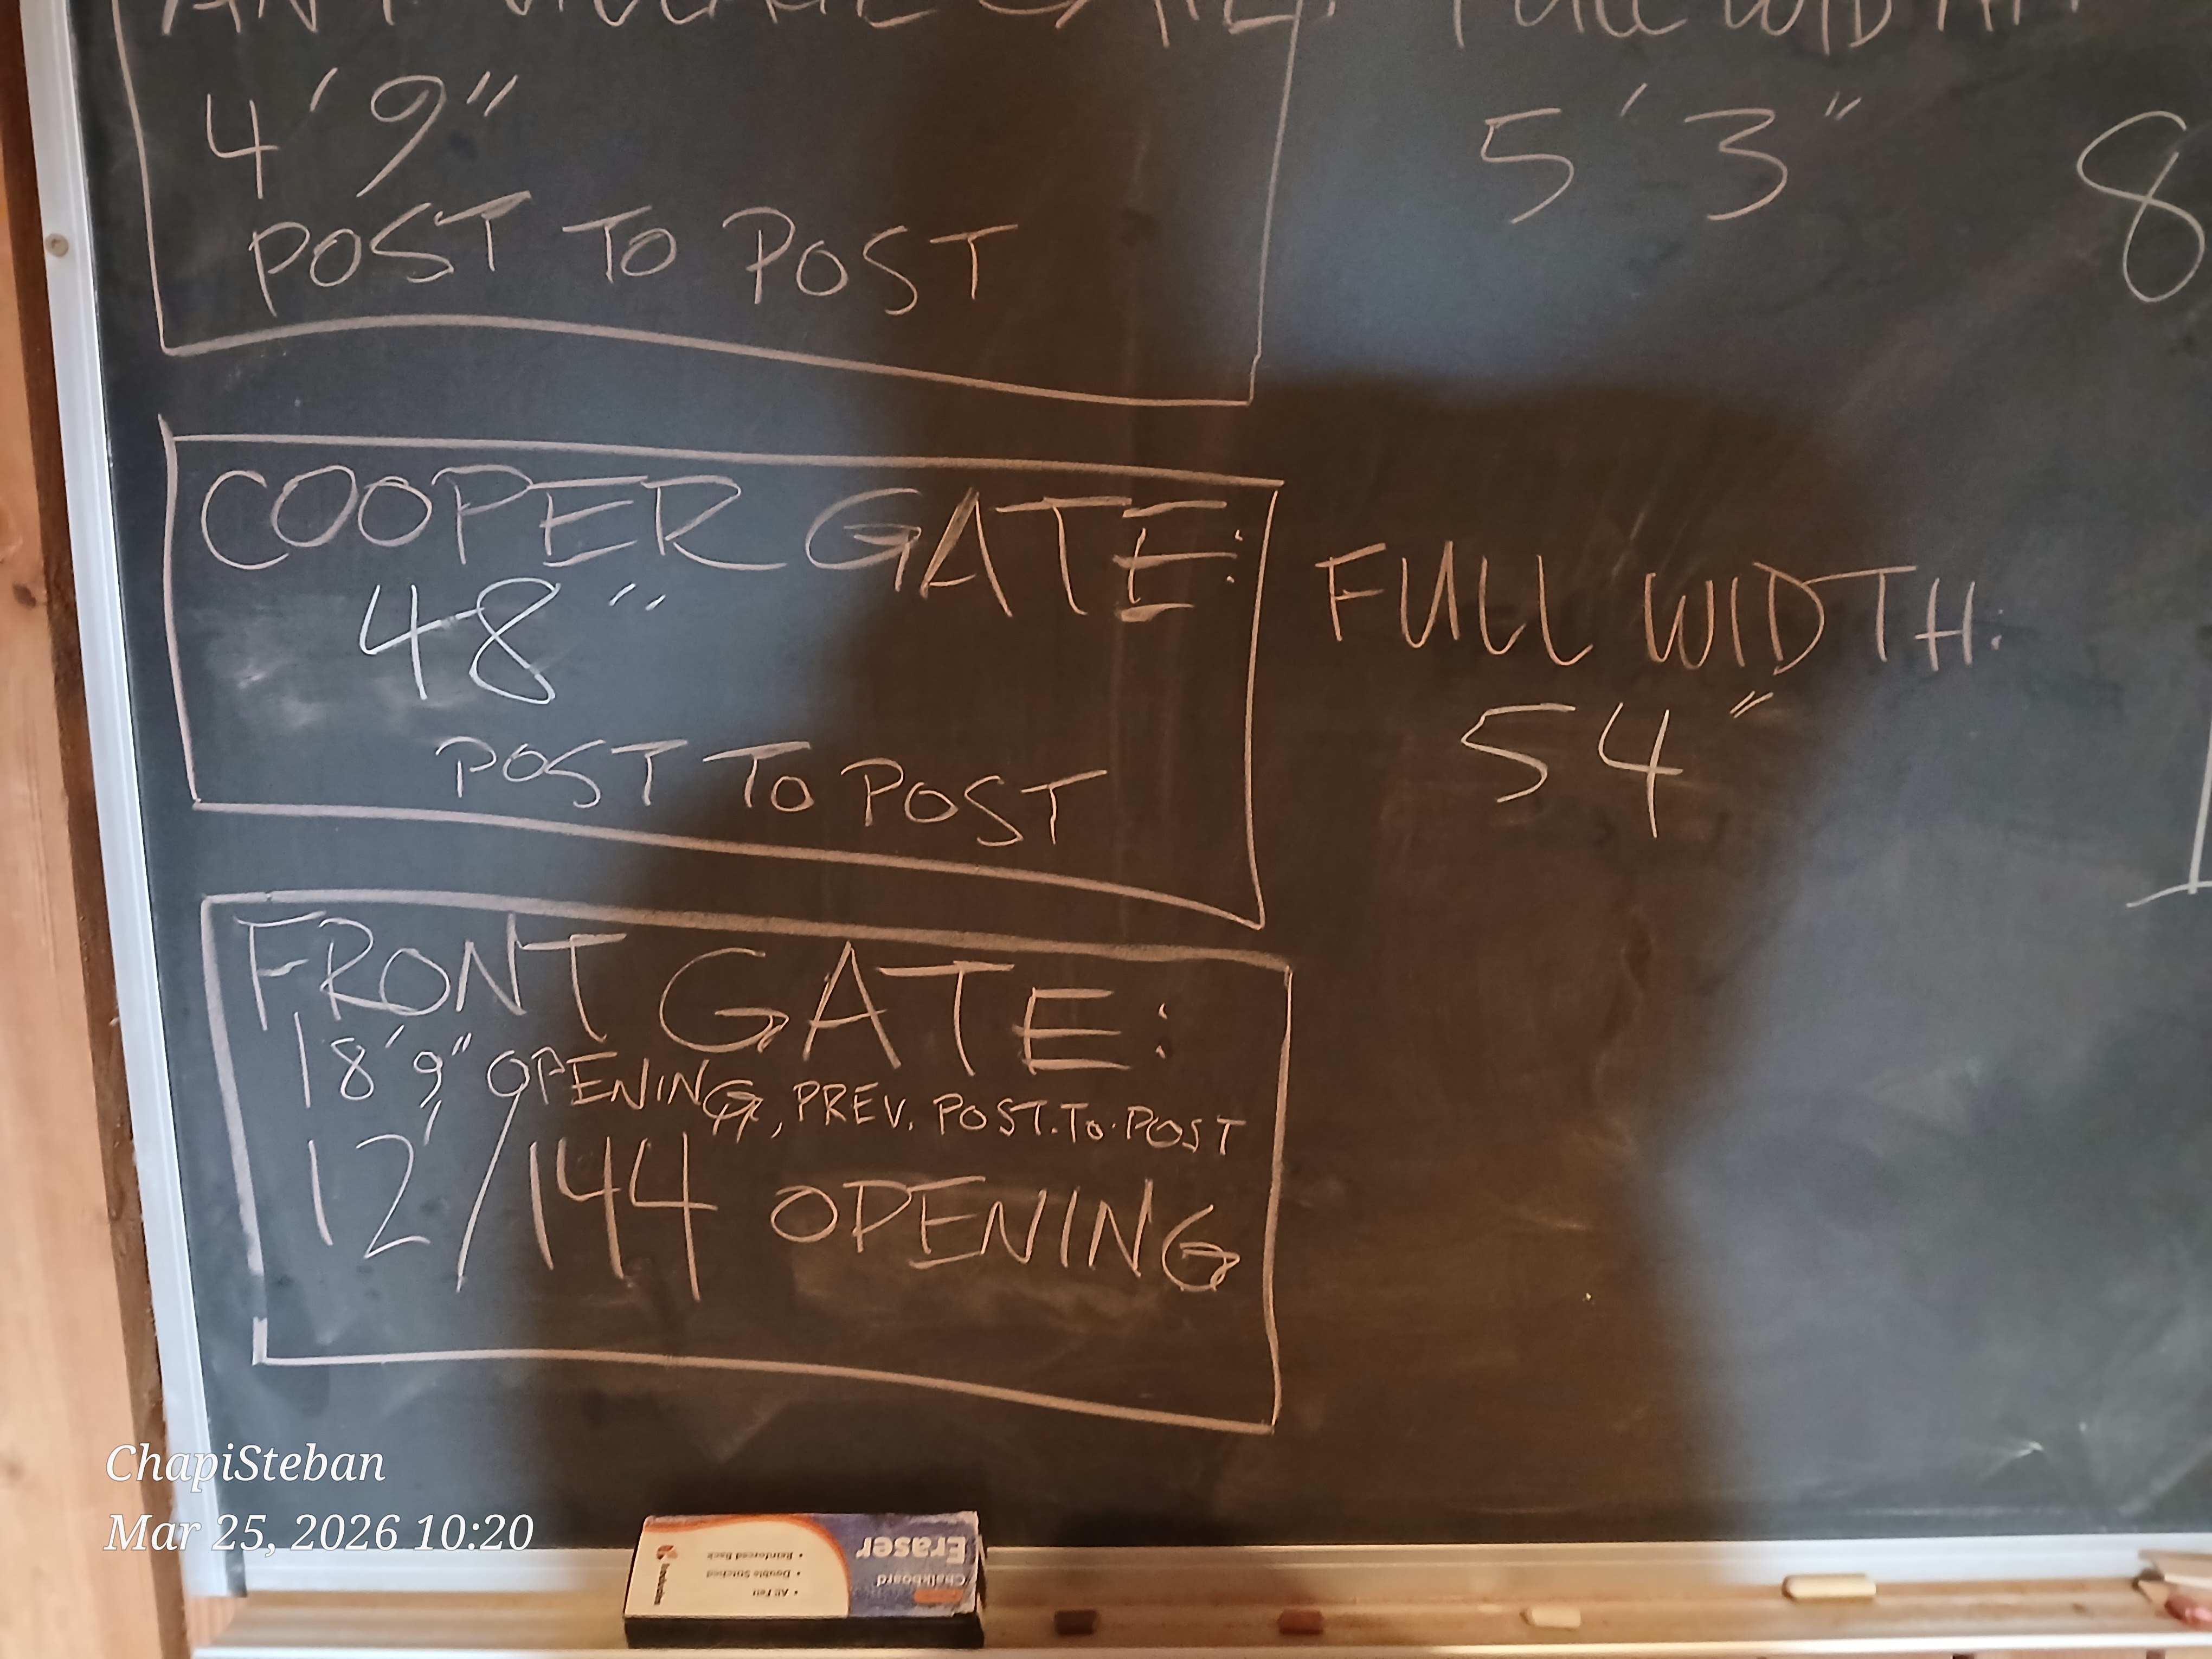 FULL WIDTH
4' 9"
5' 3"
8
POST TO POST
COOPER GATE:
48"
POST TO POST
FULL WIDTH.
54"
FRONT GATE:
18'9" OPENING, PREV. POST.TO.POST
12'/144 OPENING
ChapiSteban
Mar 25, 2026 10:20
Eraser
Chalkboard
• All Felt
• Double Stitched
• Reinforced Back